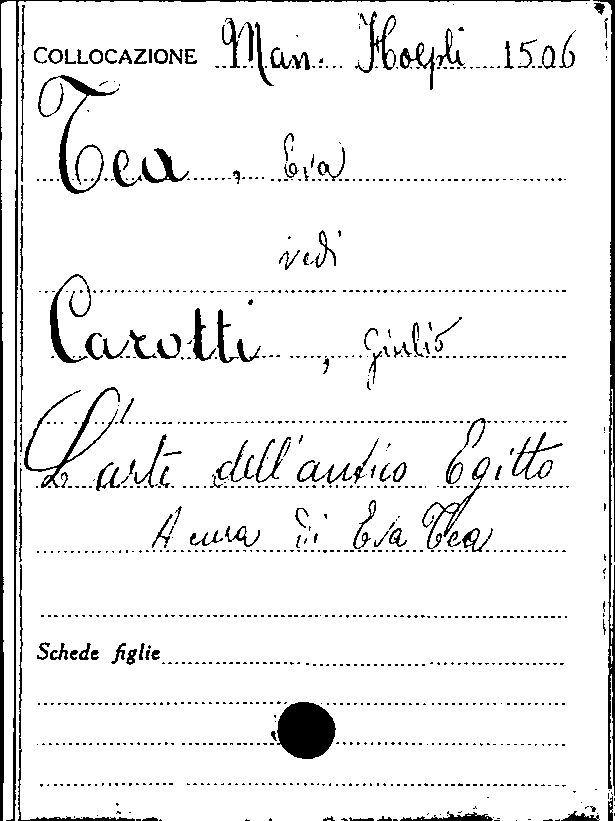 COLLOCAZIONE Man. Hoepli 1506
Tea, Eva
vedi
Carotti, Giulio
L'arte dell'antico Egitto
A cura di Eva Tea
Schede figlie